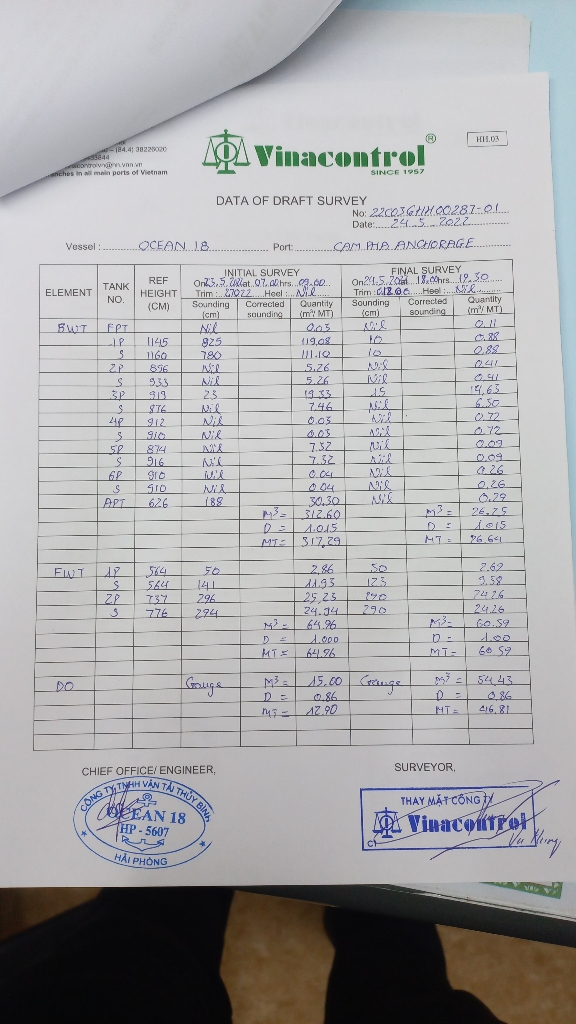 (84.4) 38226020
nches in all main ports of Vietnam
Vinacontrol ®
SINCE 1957
HH.03
DATA OF DRAFT SURVEY
No: 22C03GHH00287-01
Date: 24.5.2022
Vessel : OCEAN 18 Port: CAM PHA ANCHORAGE
ELEMENT TANK NO. REF HEIGHT (CM) INITIAL SURVEY FINAL SURVEY
hrs Heel : Nil hrs 19.30 Heel : Nil
Sounding (cm) Corrected sounding Quantity (m³/ MT) Sounding (cm) Corrected sounding Quantity (m³/ MT)
BWT FPT Nil 0.03 Nil 0.11
1P 1145 825 119.08 10 0.88
S 1160 780 111.10 10 0.88
2P 896 Nil 5.26 Nil 0.41
S 933 Nil 5.26 Nil 0.41
3P 919 23 19.33 15 14.63
S 876 Nil 7.46 Nil 6.50
4P 912 Nil 0.03 Nil 0.72
S 910 Nil 0.03 Nil 0.72
5P 874 Nil 7.32 Nil 0.09
S 916 Nil 7.32 Nil 0.09
6P 910 Nil 0.04 Nil 0.26
S 910 Nil 0.04 Nil 0.26
APT 626 188 30.30 Nil 0.29
M³ = 312.60 M³ = 26.25
D = 1.015 D = 1.015
MT = 317.29 MT = 26.64
FWT 1P 564 50 2.86 50 2.69
S 564 141 11.93 123 9.38
2P 737 296 25.23 290 24.26
S 776 294 24.94 290 24.26
M³ = 64.96 M³ = 60.59
D = 1.000 D = 1.00
MT = 64.96 MT = 60.59
DO Gauge M³ = 15.00 Gauge M³ = 54.43
D = 0.86 D = 0.86
MT = 12.90 MT = 46.81
CHIEF OFFICE/ ENGINEER, SURVEYOR,
CÔNG TY TNHH VẬN TẢI THỦY BÌNH
OCEAN 18
HP - 5607
HẢI PHÒNG
THAY MẶT CÔNG TY
Vinacontrol